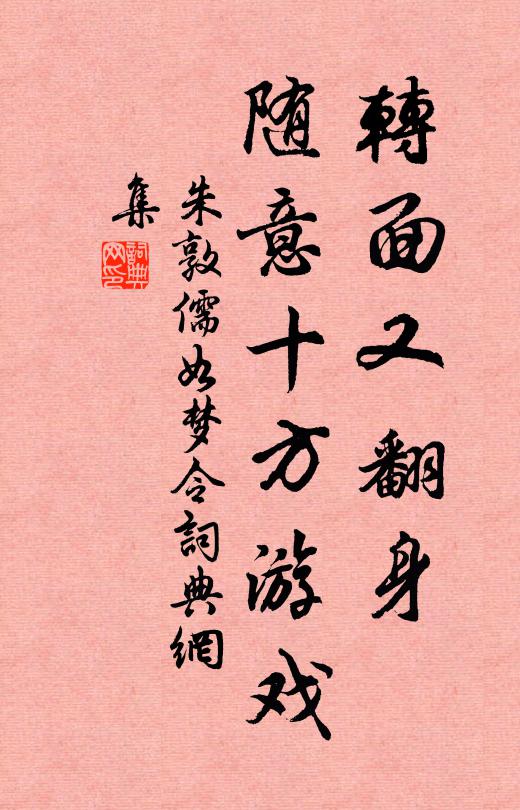 轉面又翻身
随意十方游戏
朱敦儒如梦令詞典網
集
詞典
网印